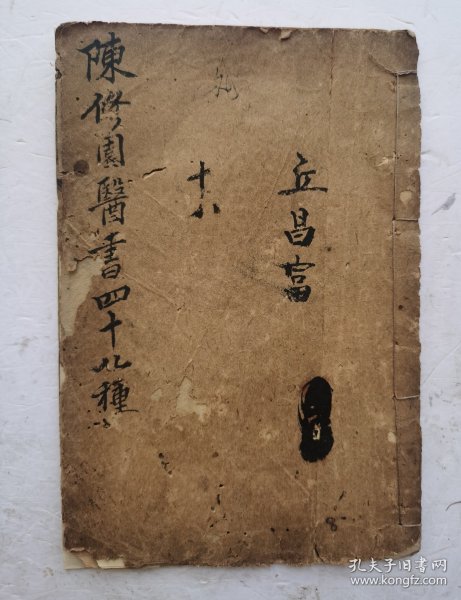 丘昌富
十八
陳修園醫書四十八種
8
孔夫子旧书网
www.kongfz.com